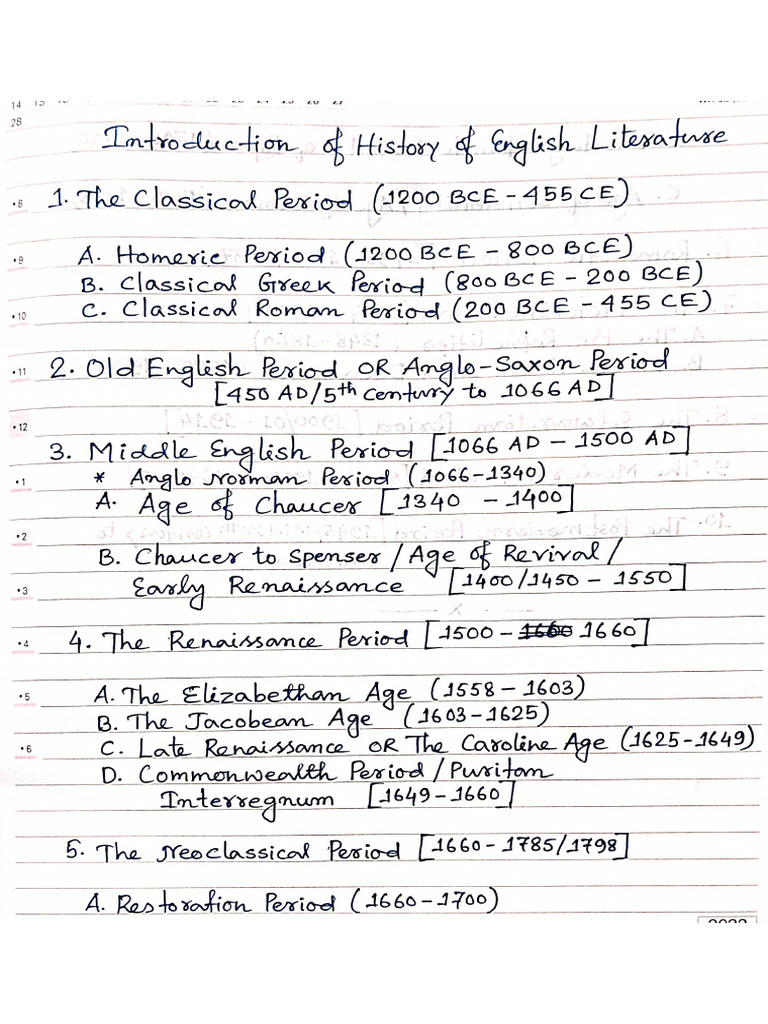 28
Introduction of History of English Literature
1. The Classical Period (1200 BCE - 455 CE)
A. Homeric Period (1200 BCE - 800 BCE)
B. Classical Greek Period (800 BCE - 200 BCE)
C. Classical Roman Period (200 BCE - 455 CE)
2. Old English Period OR Anglo-Saxon Period
[450 AD/5th century to 1066 AD]
3. Middle English Period [1066 AD - 1500 AD]
* Anglo Norman Period (1066-1340)
A. Age of Chaucer [1340 - 1400]
B. Chaucer to Spenser / Age of Revival /
Early Renaissance [1400/1450 - 1550]
4. The Renaissance Period [1500 - 1660 1660]
A. The Elizabethan Age (1558 - 1603)
B. The Jacobean Age (1603-1625)
C. Late Renaissance OR The Caroline Age (1625-1649)
D. Commonwealth Period / Puritan
Interregnum [1649-1660]
5. The Neoclassical Period [1660-1785/1798]
A. Restoration Period (1660-1700)